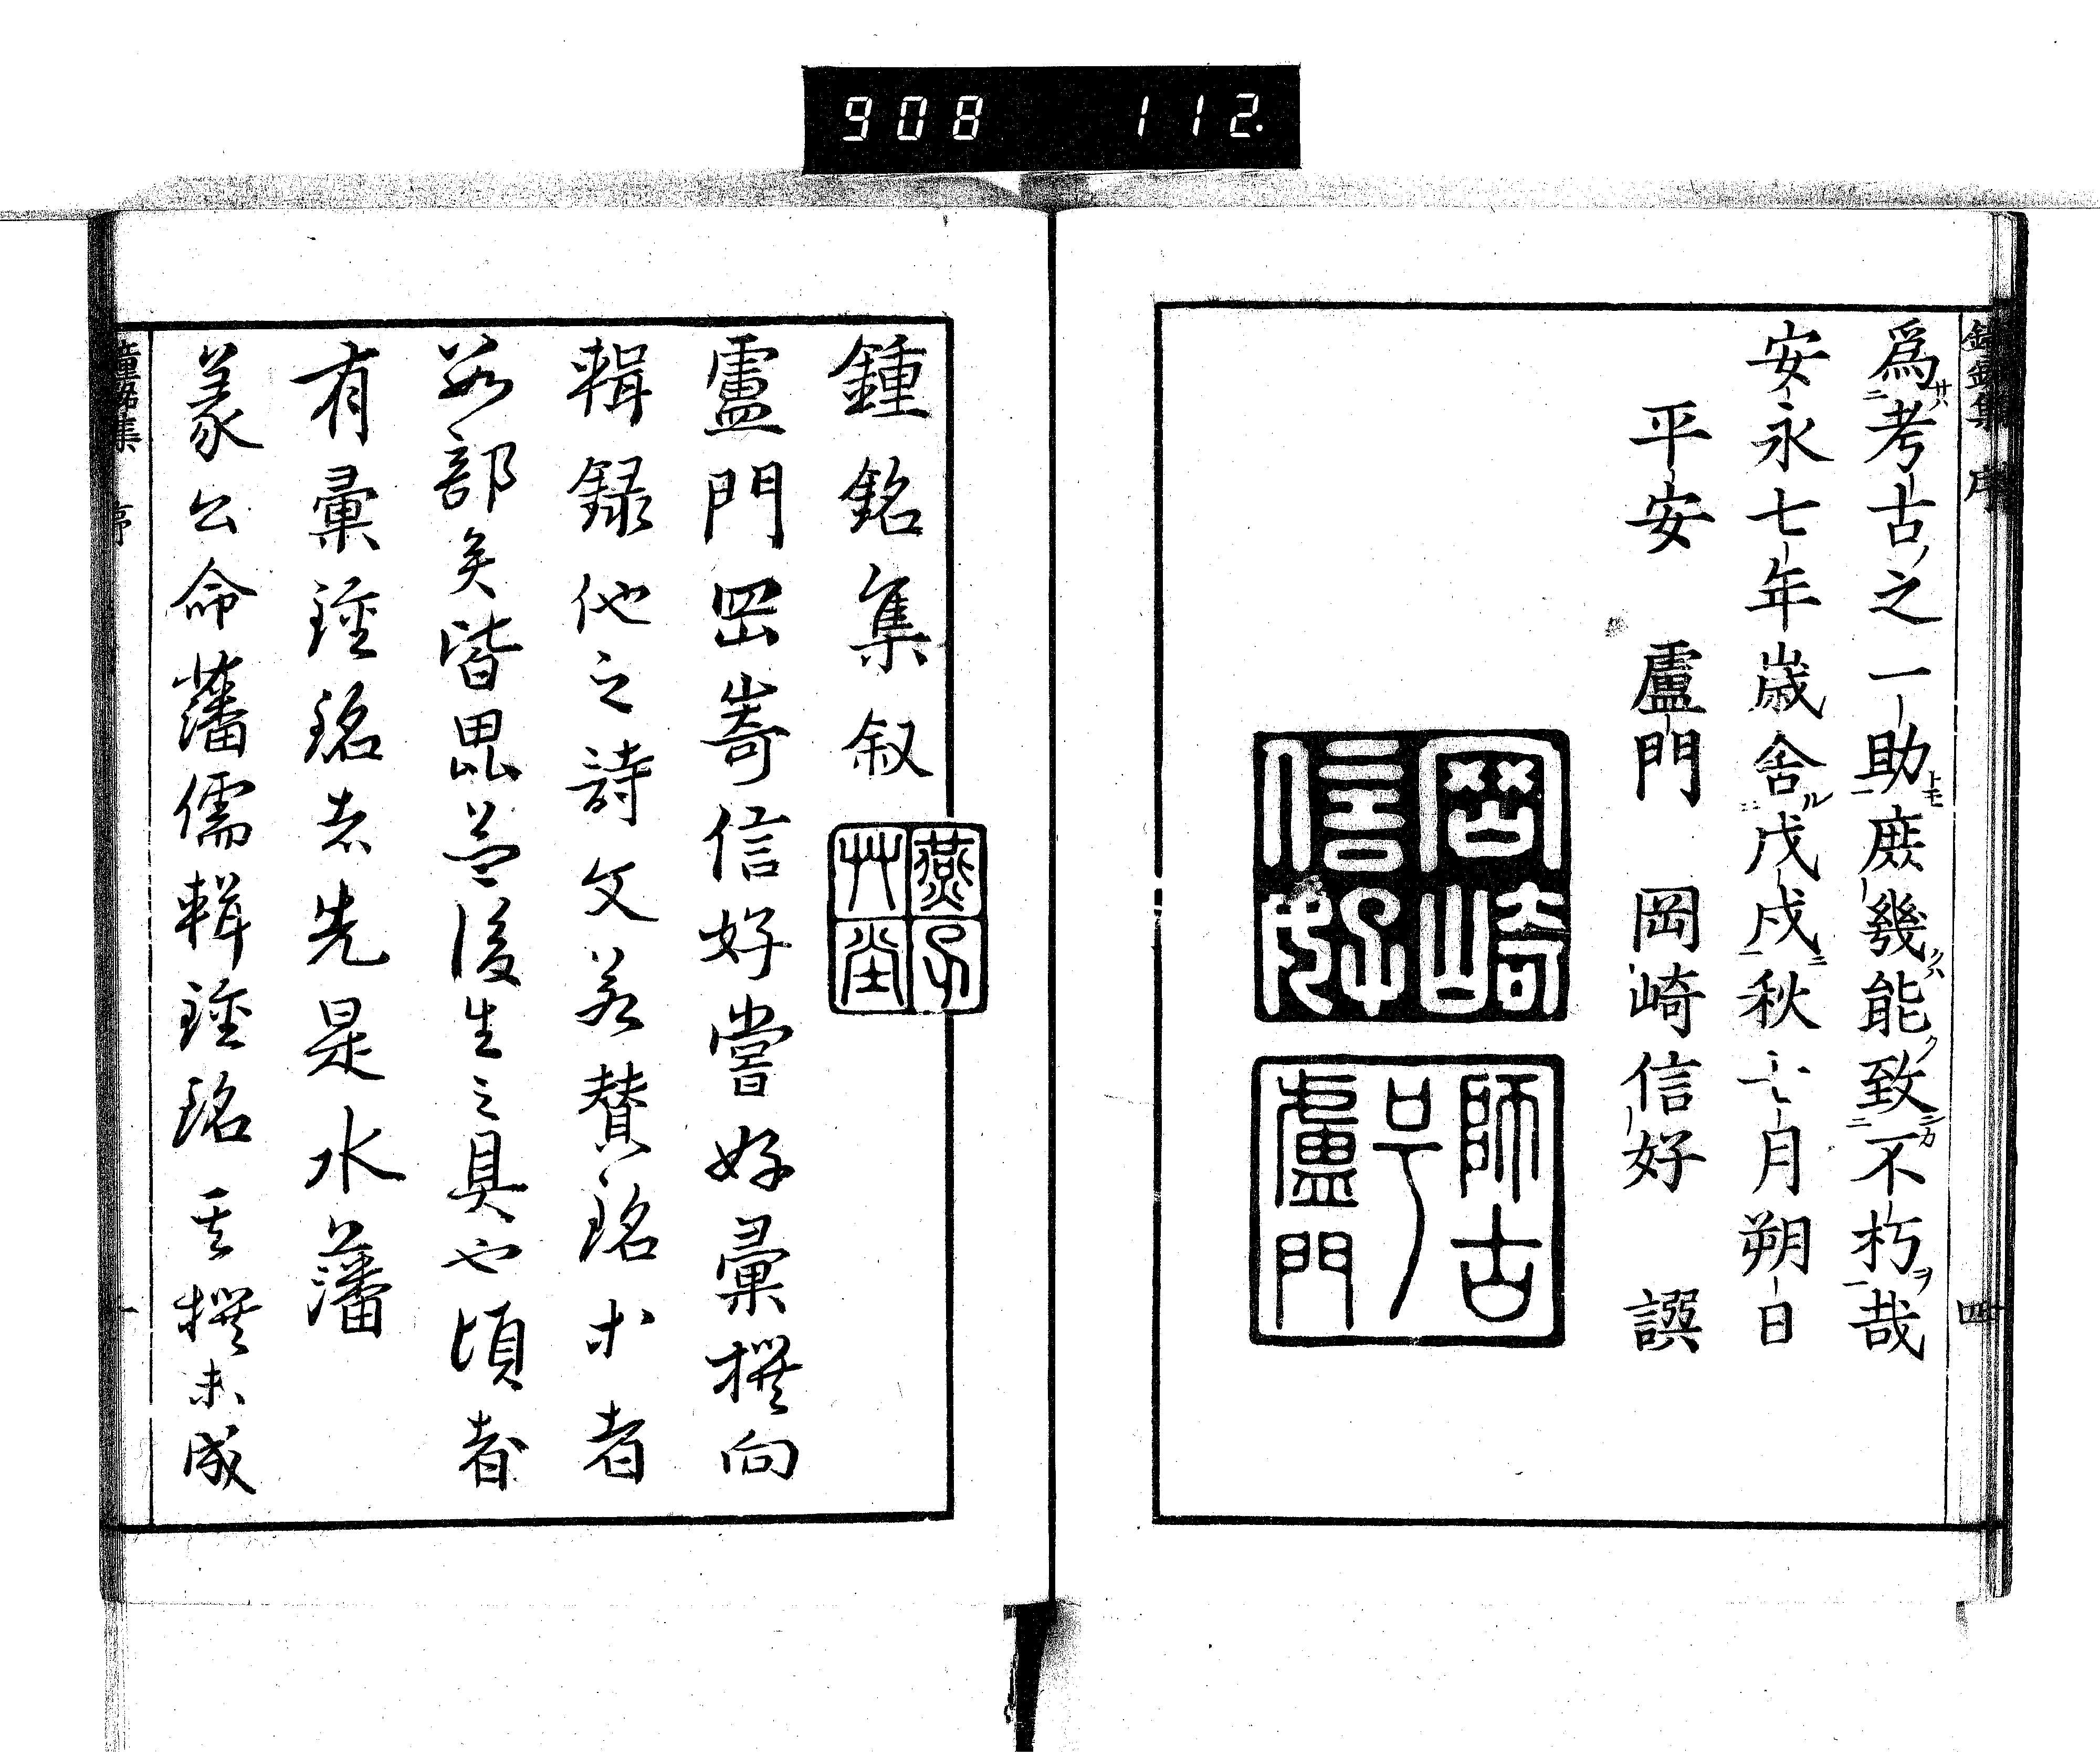 908 112.
鍾銘集 序
爲考古之一助庶幾能致不朽哉
安永七年歳舎戊戌秋七月朔日
平安 盧門 岡崎信好 譔
岡崎信好
師古号盧門
四
鍾銘集叙
燕子艸堂
盧門岡嵜信好嘗好彙撰向
輯録他之詩文若賛銘求者
若部矣皆毘益後生之具也頃者
有彙鍾銘志先是水藩
義公命藩儒輯鍾銘其撰未成
鍾銘集 序
一